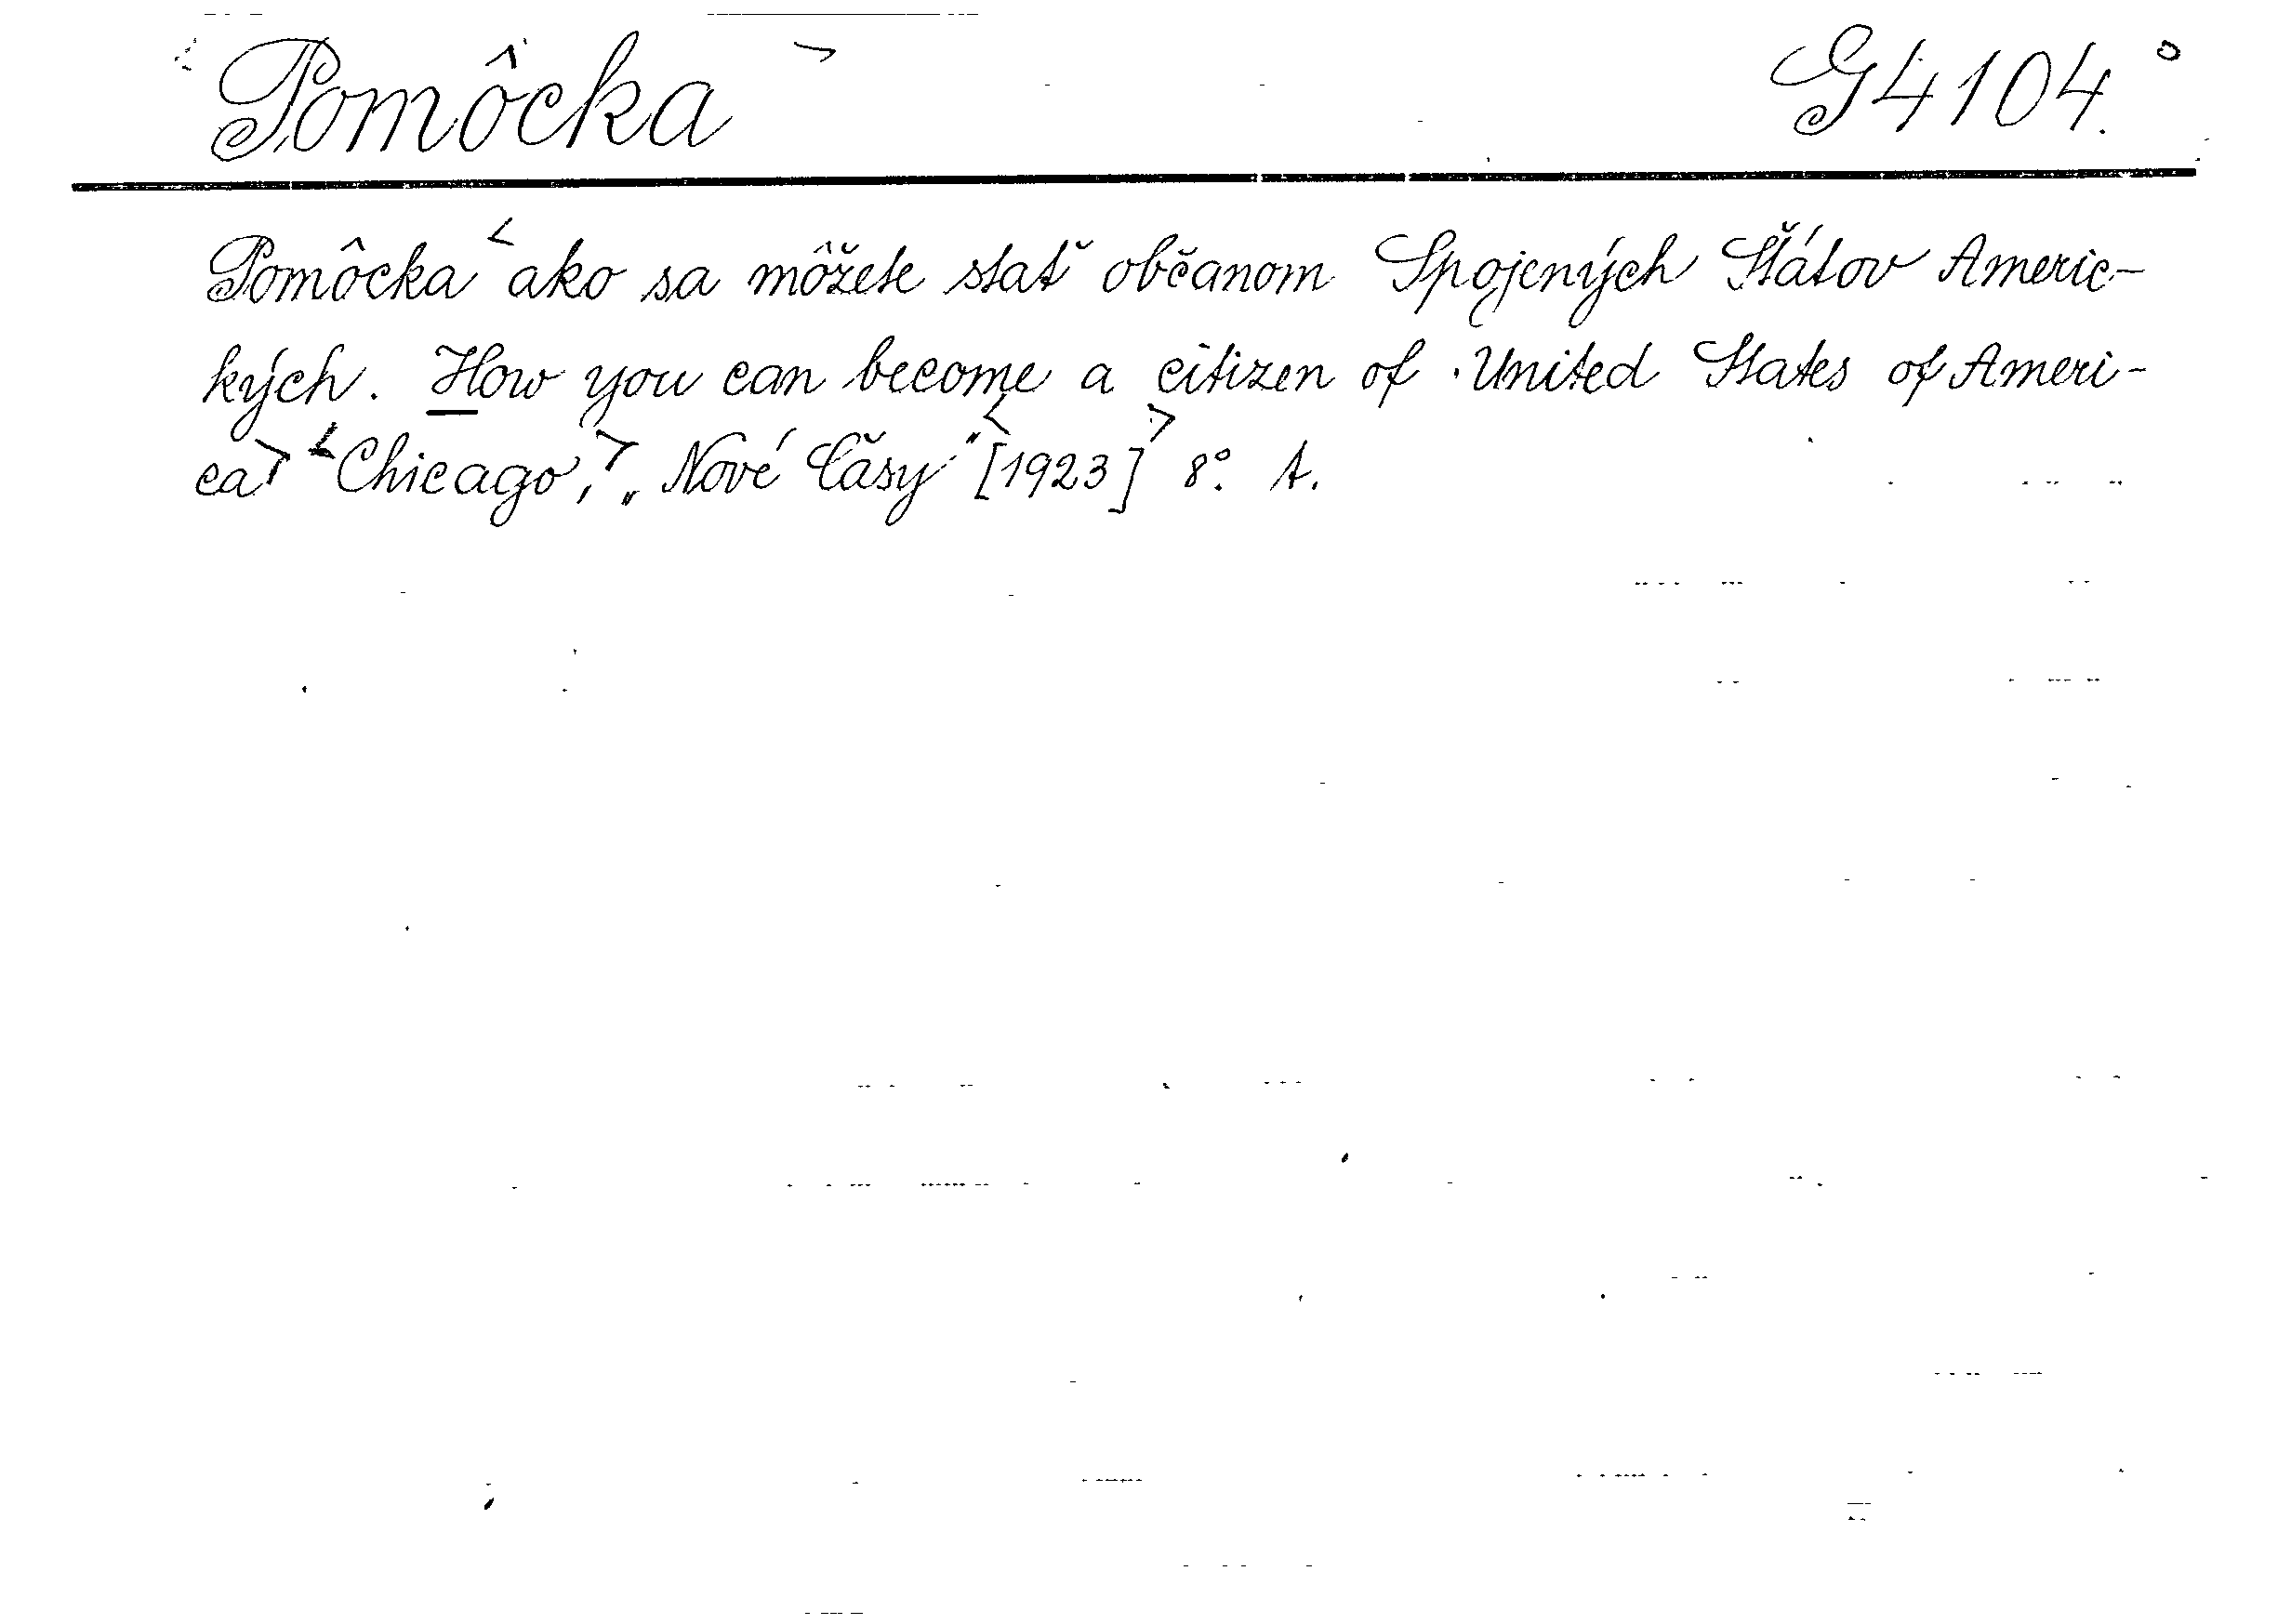 Pomôcka G4104.°
Pomôcka ako sa môžete stať občanom Spojených Štátov Americ-
kých. How you can become a citizen of United States of Ameri-
ca. Chicago, „Nové Časy" [1923] 8°. A.